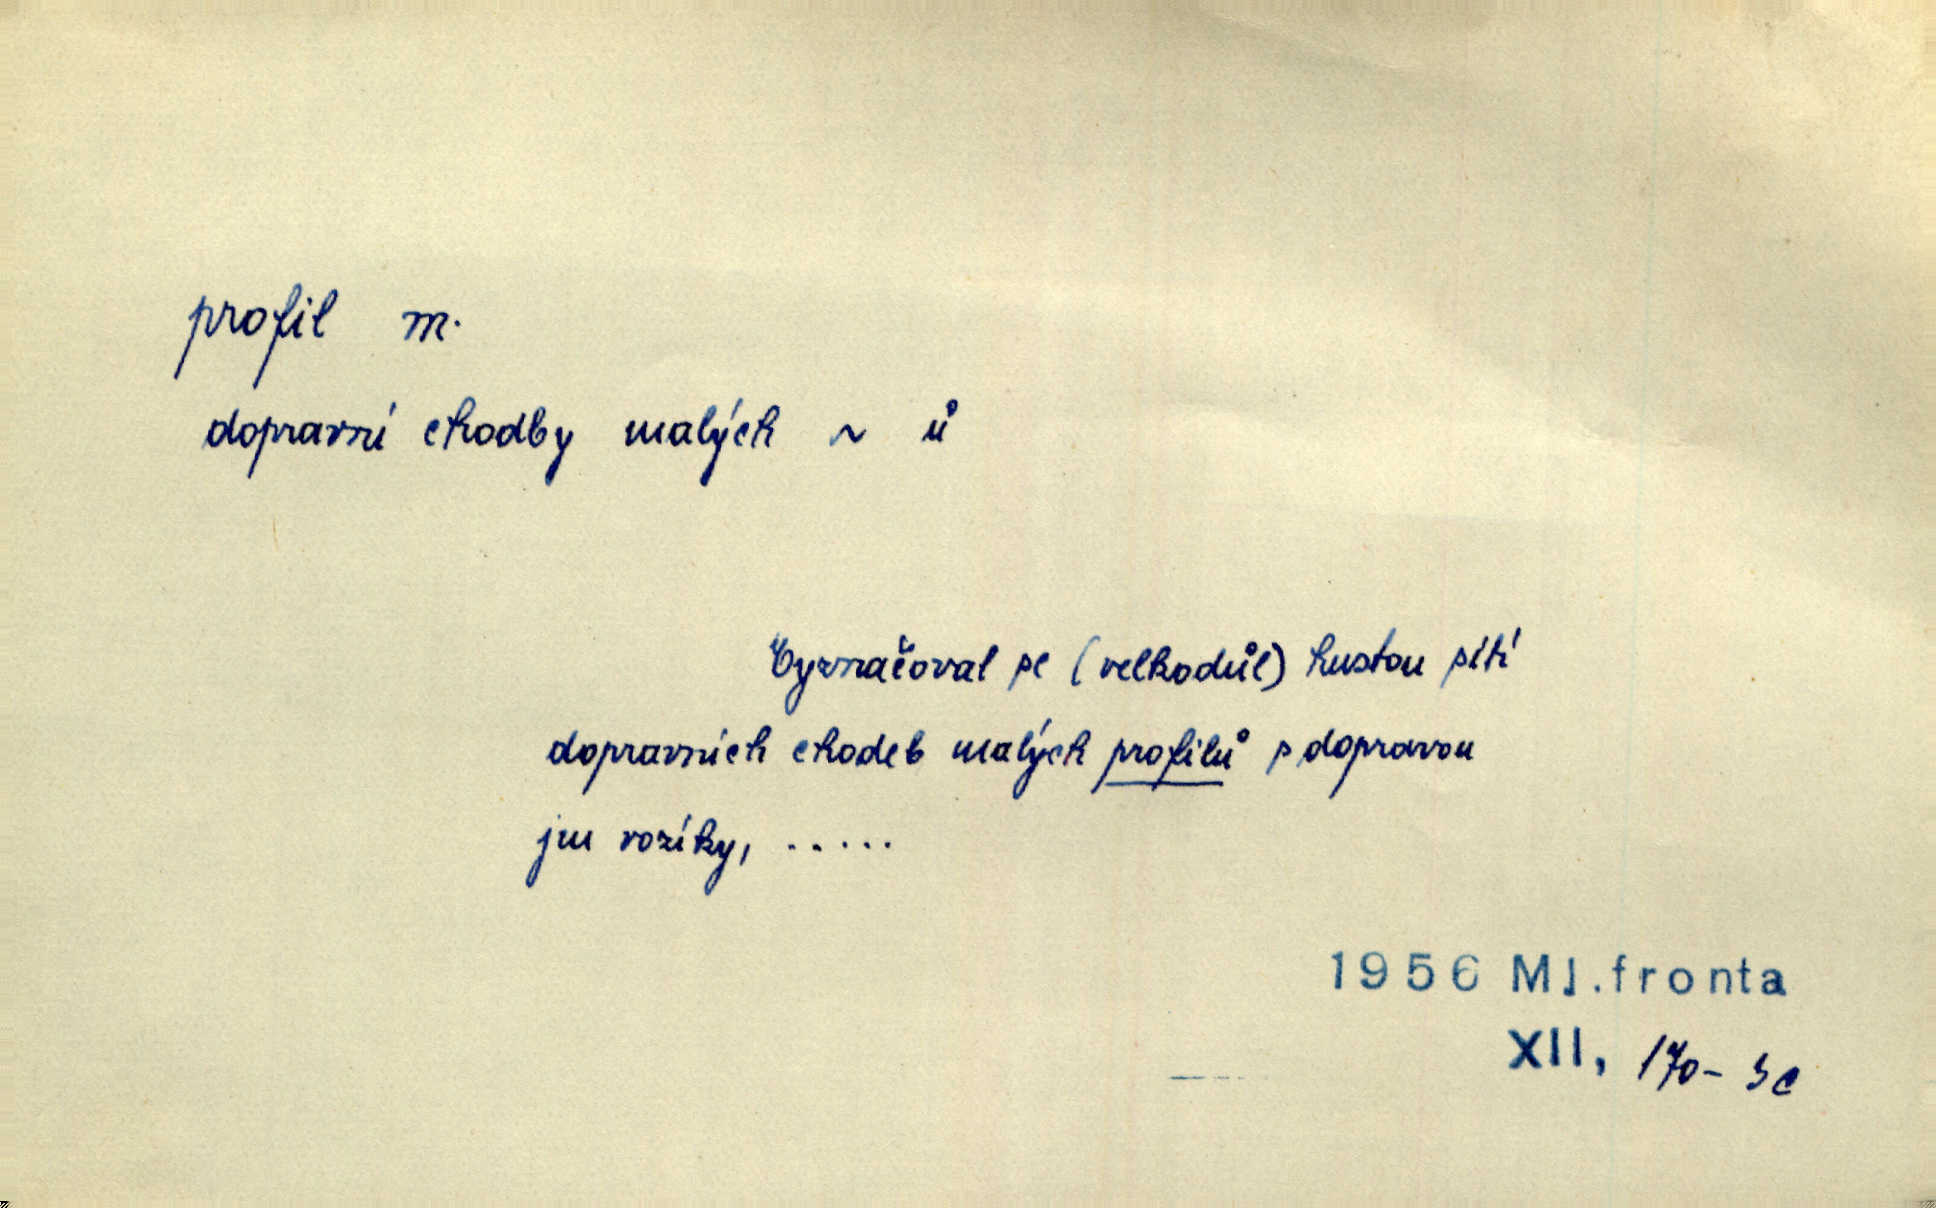 profil m.
dopravní chodby malých ~ ů
Vyznačoval se (velkodůl) hustou sítí
dopravních chodeb malých profilů s dopravou
jen vozíky, .....
1956 Ml. fronta
XII, 170-3c